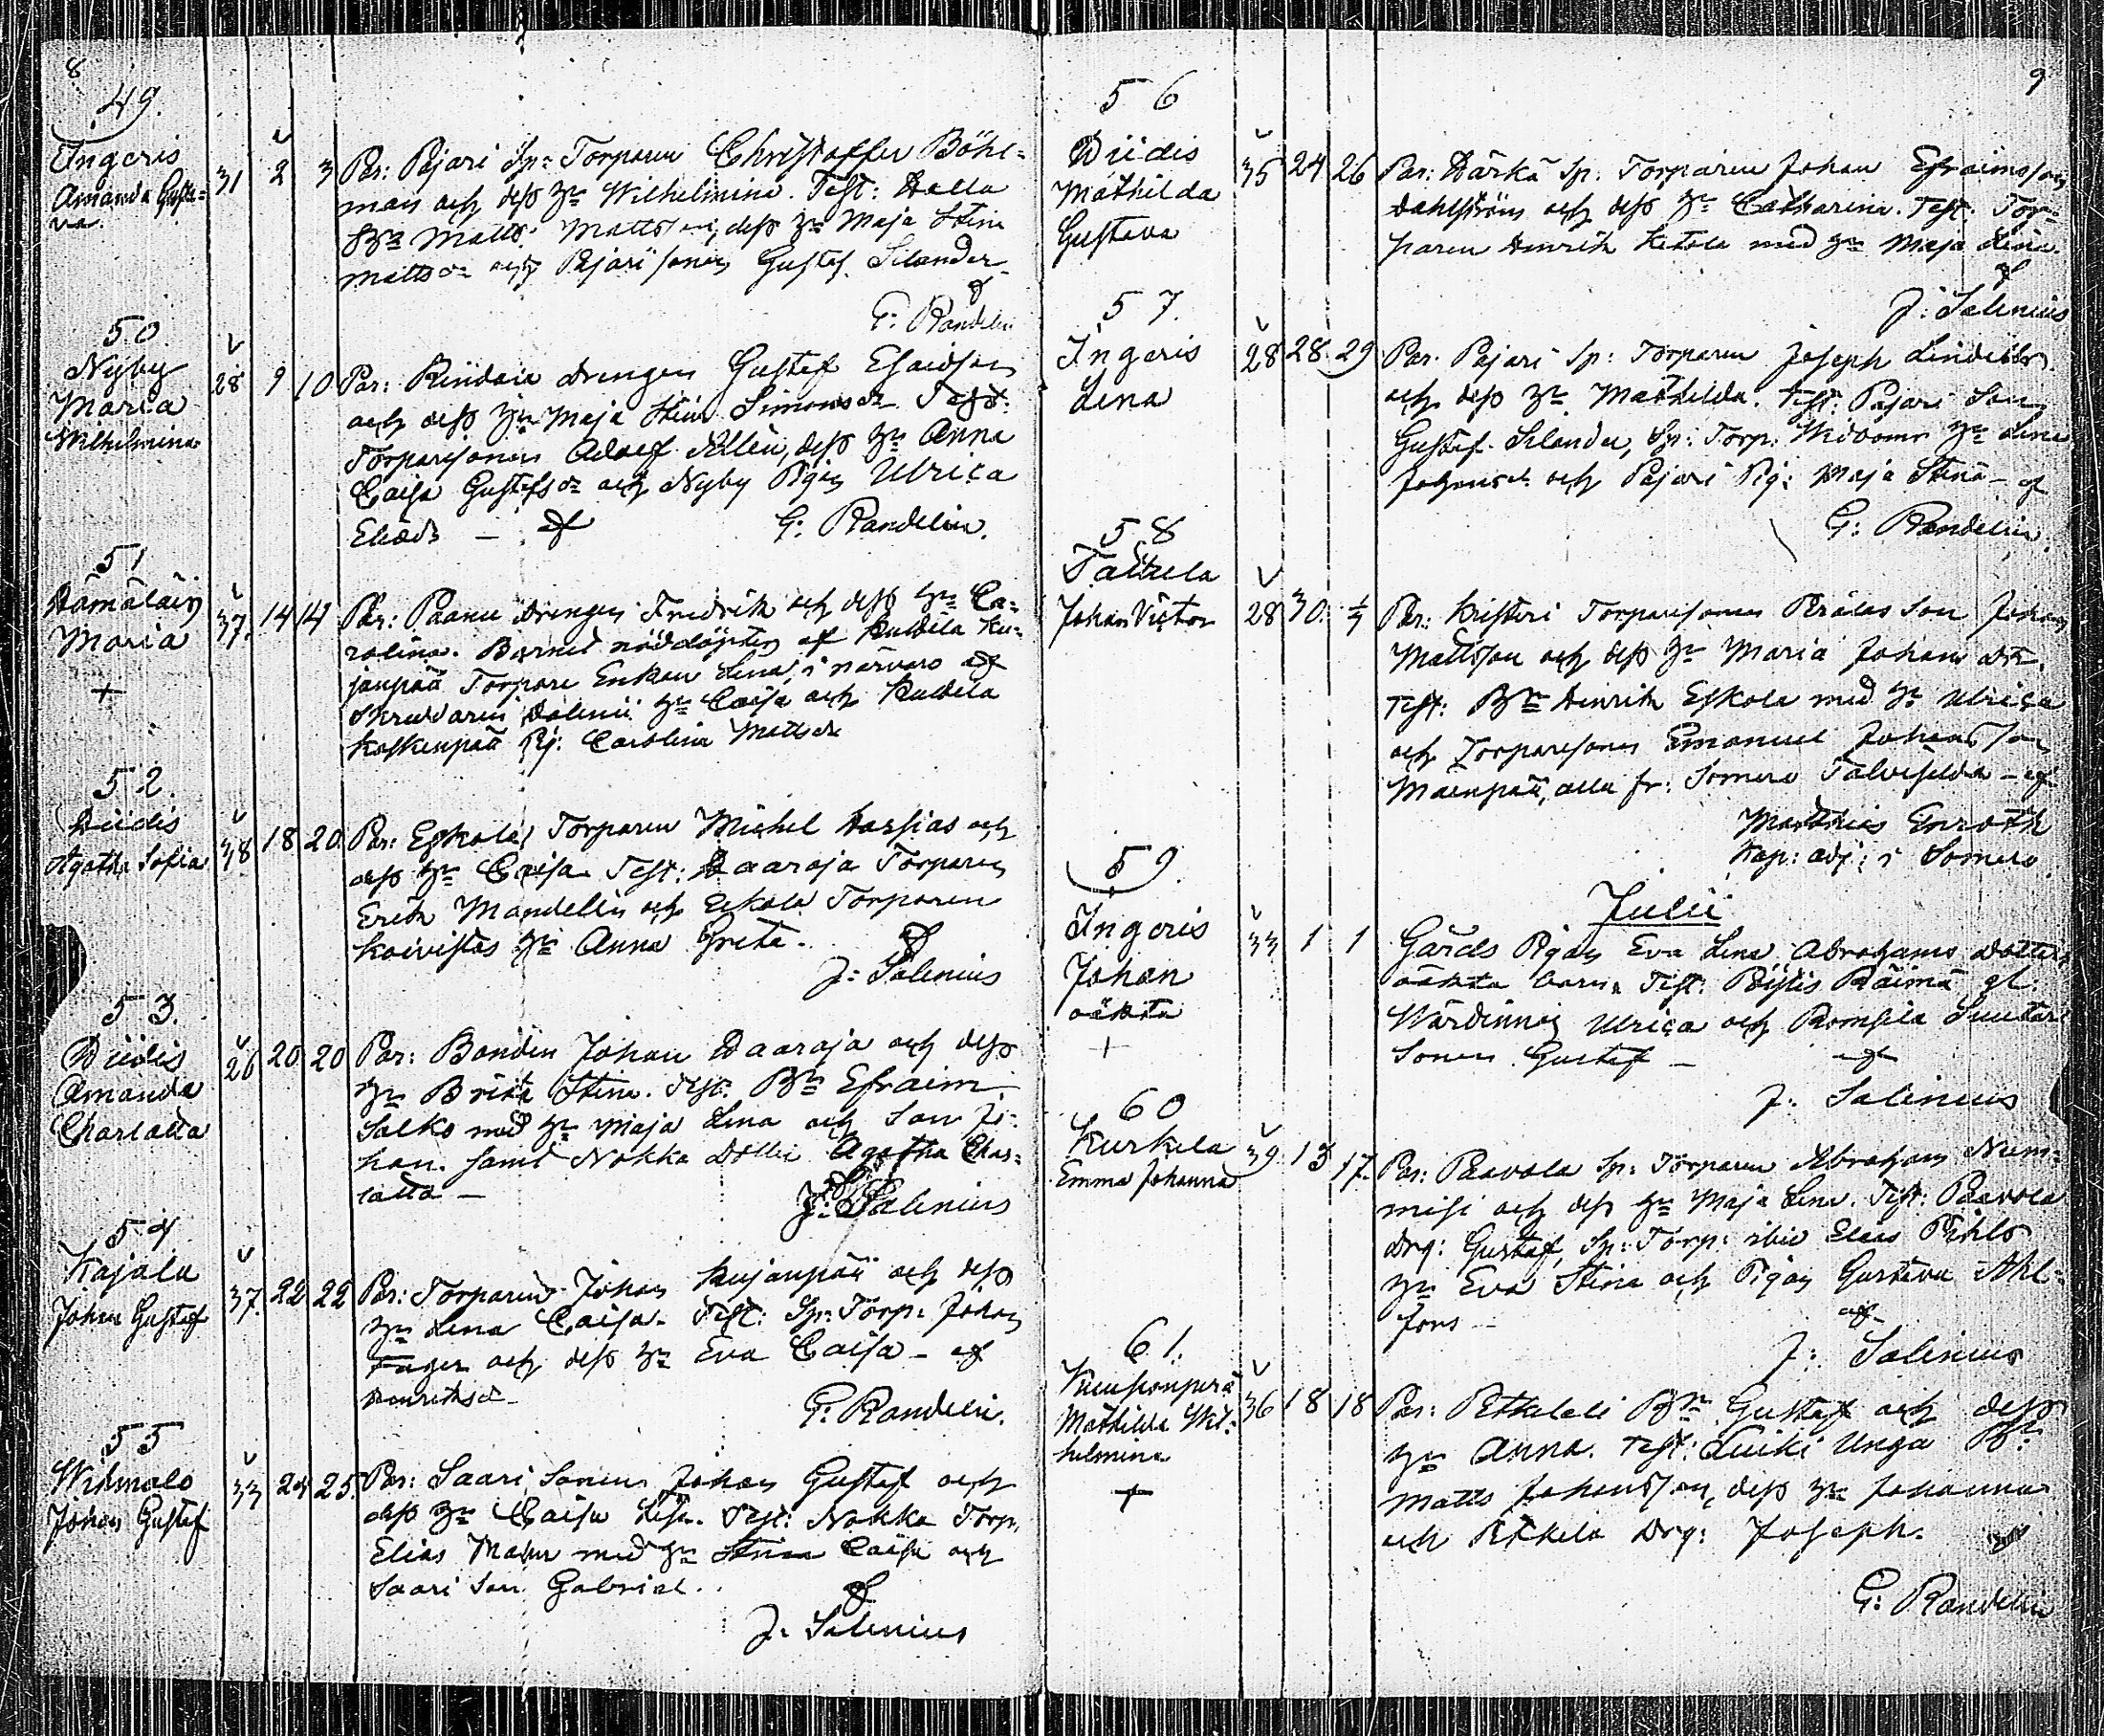 8
49.
Ingeris
Amanda Gusta=
va.
31 2 3
Par: Pajari Sp: Torparen Christoffer Böhl=
man och dess Hu Wilhelmina. Test:
Matts Mattsson, dess Hu Maja Stina
Mattsdr och Pajari sonen Gustaf Selander
af
G: Randelin
50
Nyby
Maria
Wilhelmina
28 9 10
Par: drengen Gustaf Esaidson
och dess Hu Maja Stina Simonsdr Test:
Torparesonen Adolf dess Hu Anna
Caisa Gustafsdr och Nyby Pigan Ulrica
Eliædr — af G: Randelin.
51
Hämäläin
Maria
+
37. 14 14
Par: Paanu drengen Fredrik och dess Hu Ca=
rolina. Barnet nöddöptes af Kuldela Ku=
janpää Torpare Enkan Lena, i närvaro af
Skreddaren Salenii Hu Caisa och Kuldela
Koskenpää Pig: Carolina Mattsdr
52.
Diidis
Agatha Sofia
38 18 20
Par: Eskola Torparen Michel Harsias och
dess Hu Caisa Test: Daaraja Torparen
Erik Mandelin och Eskola Torparen
Koivistos Hu Anna Greta.
af
J: Salenius
53.
Diidis
Amanda
Charlotta
26 20 20
Par: Bonden Johan Daaraja och dess
Hu Brita Stina. Test: Bn Efraim
Salko med Hu Maja Lena och Son Jo=
han. samt Nokka Dotter Agatha Char=
lotta —
J: Salenius
54
Kajala
Johan Gustaf
37. 22 22
Par: Torparen Johan Kujanpää och dess
Hu Lena Caisa. Test: Sp: Torp: Johan
Fager och dess Hu Eva Caisa — af
Henriksdr
G: Randelin.
55
Widmalo
Johan Gustaf
33 24 25.
Par: Saari Sonen Johan Gustaf och
dess Hu Caisa Lisa. Test: Nokka Torp.
Elias med Hu Stina Caisa och
Saari Son Gabriel.
af
J. Salenius
9
56
Diidis
Mathilda
Gustava
35 24 26
Par: Härkä Sp: Torparen Johan Efraimsson
Dahlström och dess Hu Catharina. Test: Tor=
paren Henrik Ketola med Hu Maja Lena.
af
J: Salenius
57.
Ingeris
Lena
28 28 29
Par: Pajari Sp: Torparen Joseph
och dess Hu Mathilda. Test: Pajari Son
Gustaf Selander, Sp: Torp: Hu Lena
Johansdr och Pajari Pig: Maja Stina — af
G: Randelin.
58
Talhela
Johan Victor
28 30. 1/7
Par: Kisteri Torparesonen Son Johan
Mattsson och dess Hu Maria Johans dr.
Test: Bn Henrik Eskola med Hu Ulrica
och Torparesonen Emanuel Johansson
Mäenpää, alla fr: Somero Talvisilda — af
Matthias Enroth
Kap: adj: i Somero.
59.
Ingeris
Johan
oäkta
+
33 1 1
Julii
Gårds Pigan Eva Lena Abrahams dotters
oäkta barn. Test: Röima gl:
Wärdinnan Ulrica och Suutari
Sonen Gustaf — af
J: Salenius
60
Kurkela
Emma Johanna
39 13 17.
Par: Paavola Sp: Torparen Abraham Num=
misi och dess Hu Maja Lena. Test: Paavola
Drg: Gustaf, Sp: Torp: ibid Elias
Hu Eva Stina och Pigan Gustava Ahl=
fors — af
J: Salenius
61.
Kuusjonperä
Mathilda Wil=
helmina
+
36 18 18
Par: Bn Gustaf och dess
Hu Anna. Test: Unga Bn
Matts Johansson, dess Hu Johanna
och Drg: Joseph. af
G: Randelin